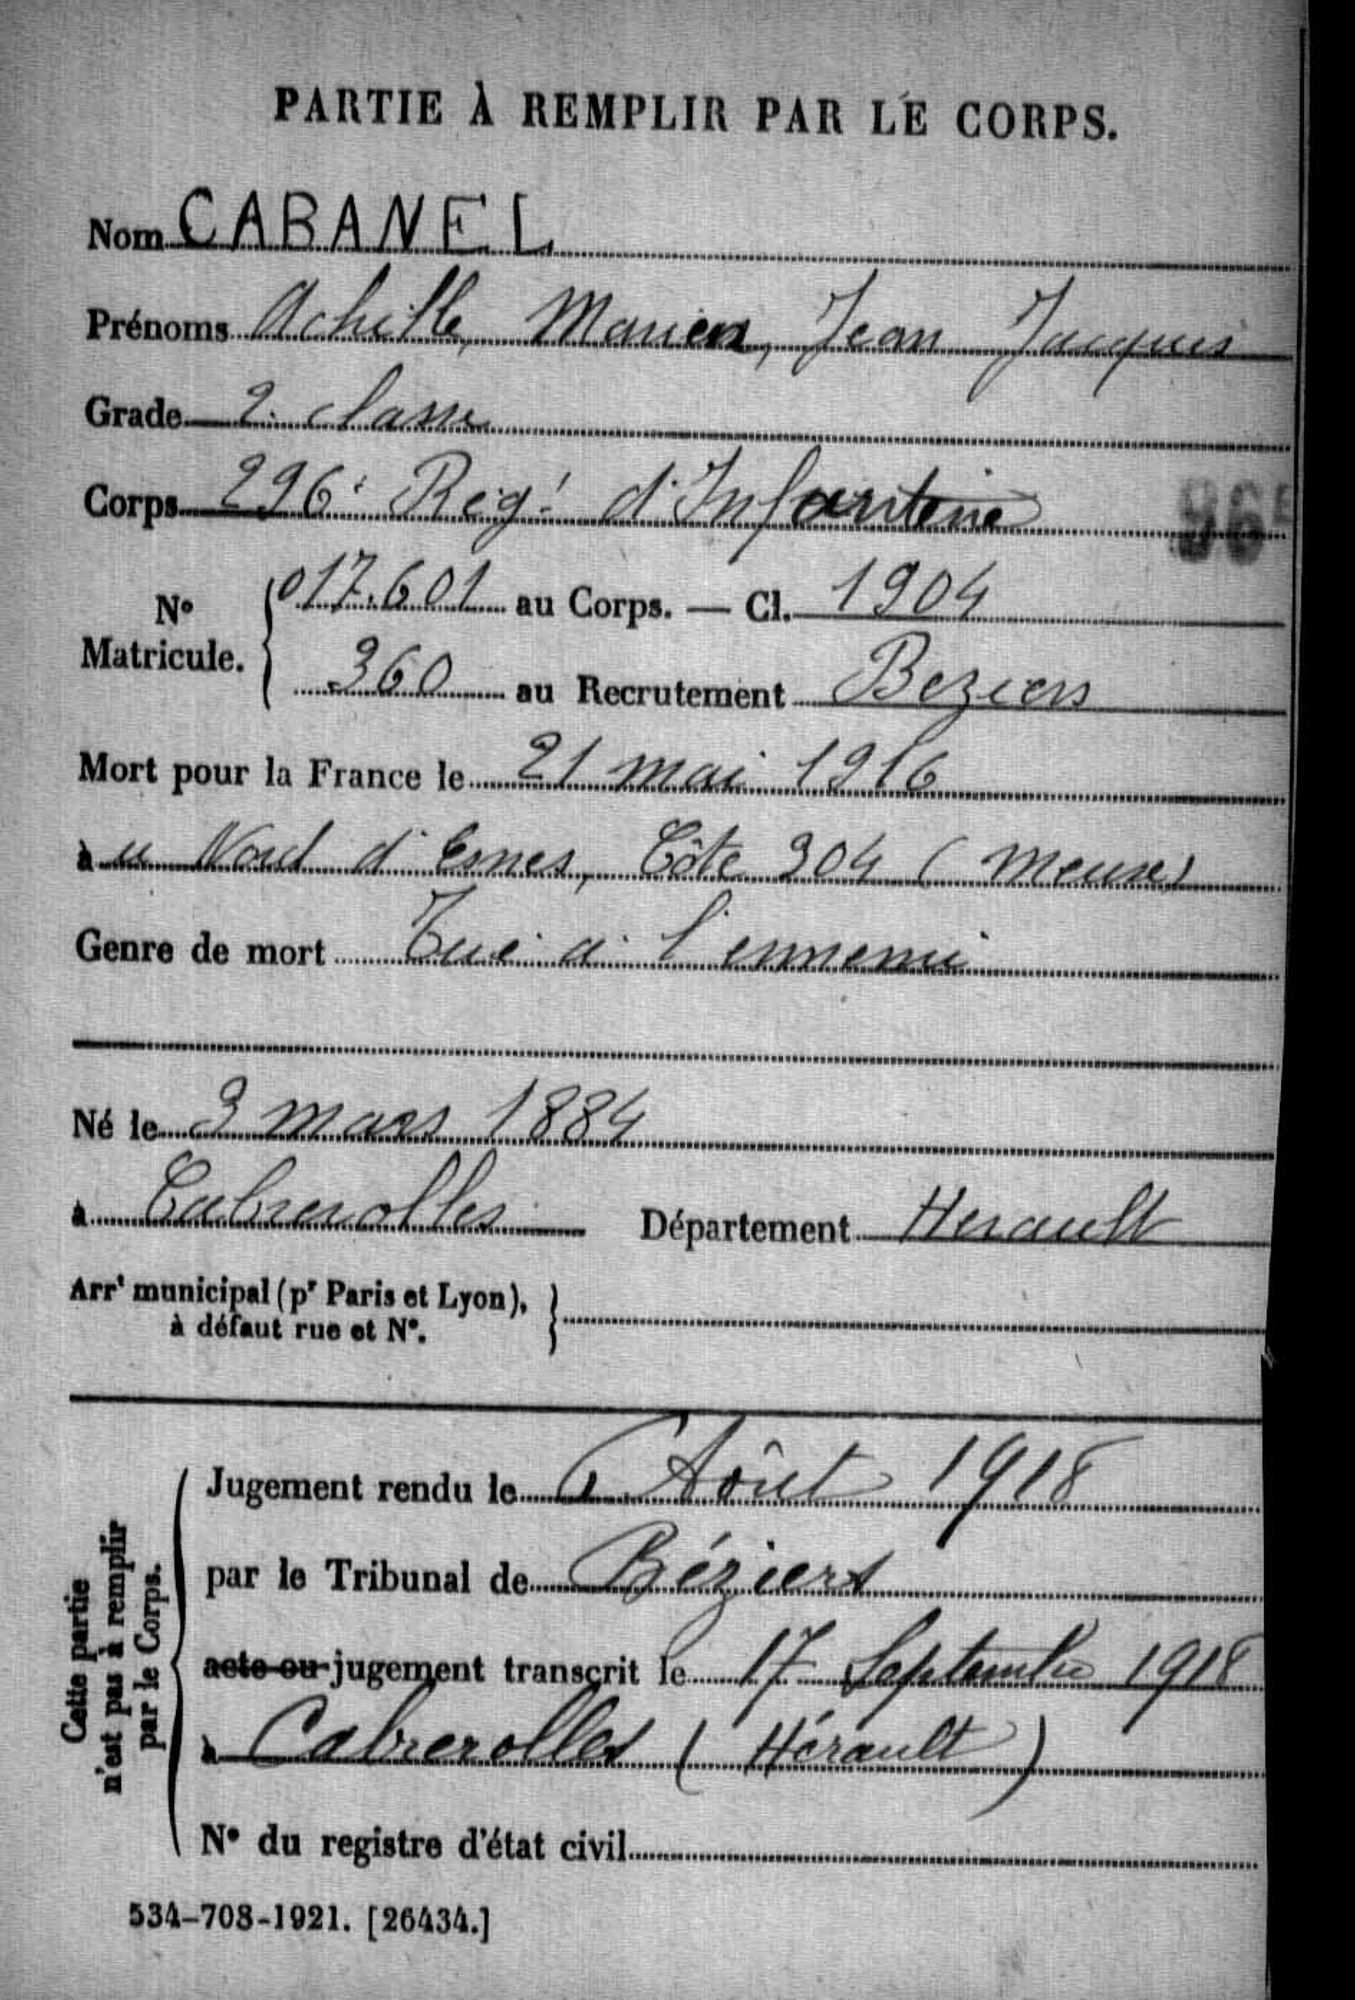 PARTIE À REMPLIR PAR LE CORPS.
Nom CABANEL
Prénoms Achille, Marien, Jean Jacques
Grade 2e classe
Corps 296e Régt d'Infanterie
No Matricule. { 017.601 au Corps. — Cl. 1904
360 au Recrutement Beziers
Mort pour la France le 21 mai 1916
au Nord d'Esnes, Côte 304 (Meuse)
Genre de mort Tué à l'ennemi
Né le 3 mars 1884
à Cabrerolles Département Herault
Arrt municipal (pr Paris et Lyon),
à défaut rue et N°.
Cette partie n'est pas à remplir par le Corps.
Jugement rendu le Aôut 1918
par le Tribunal de Béziers
acte ou jugement transcrit le 17 Septembre 1918
à Cabrerolles (Hérault)
N° du registre d'état civil
534-708-1921. [26434.]